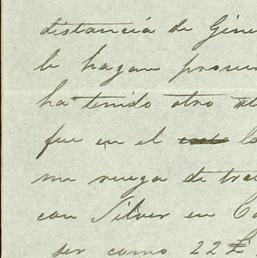 distancía de Gine
le hagan prosu
ha tenido otro
fue en el
me ruega de tra
con Silver en Co
ser como 22£